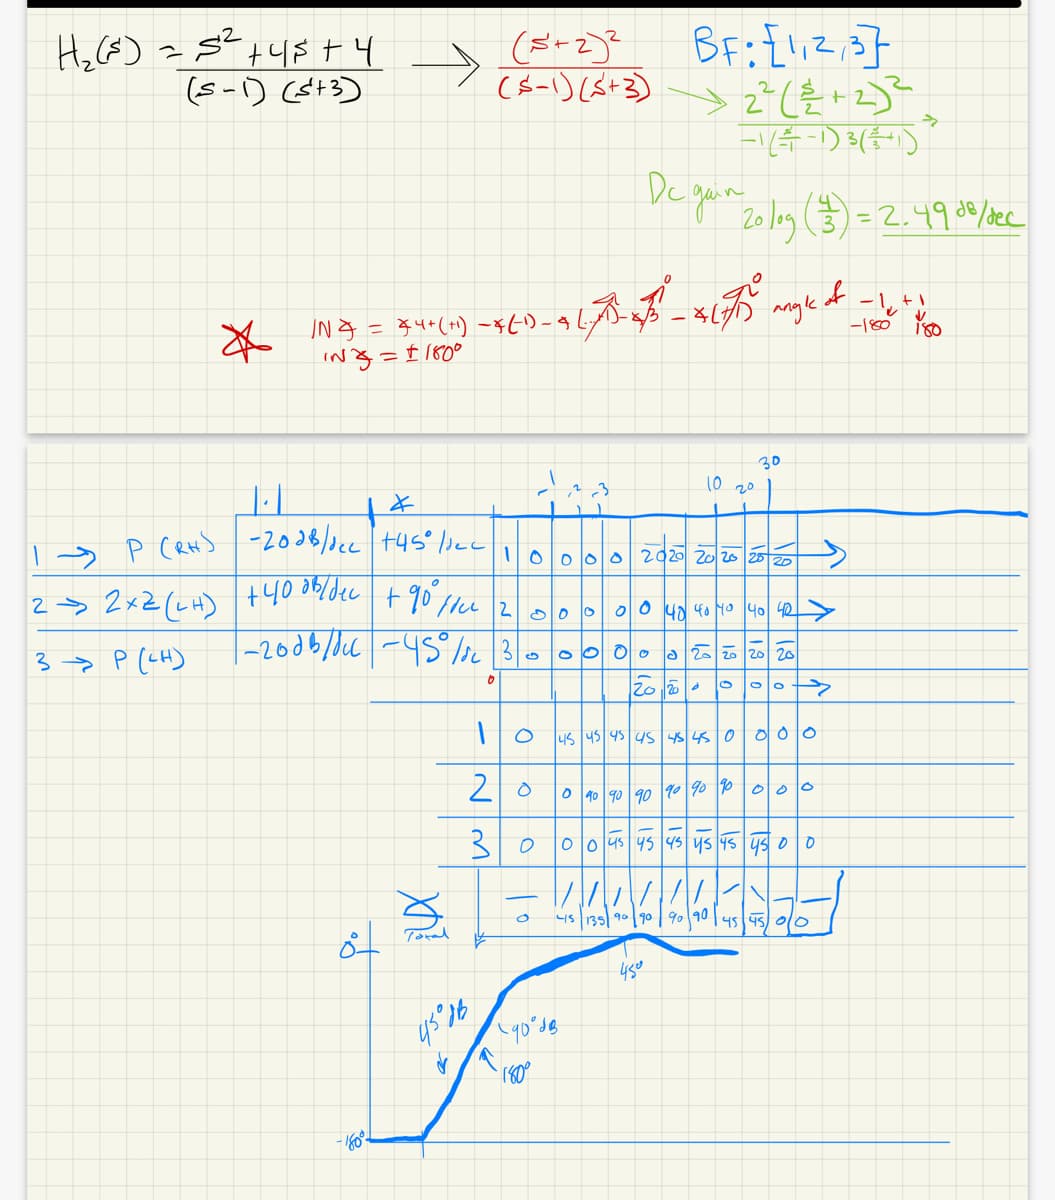 H₂(s) = s² + 4s + 4 / (s-1)(s+3) → (s+2)² / (s-1)(s+3)
BF: {1,2,3}
→ 2²(s/2 + 2)² / -1(s/-1 - 1) 3(s/3 + 1) →
Dc gain 20 log (4/3) = 2.49 dB/dec
IN ∡ = ∡4+(+1) - ∡(-1) - ∡
angle of -1, +1
IN ∡ = ± 180°
-180 180
30
-1 -2 -3 10 20
|·| ∡
1 → P (RH) -20dB/dec +45°/dec 1 0 0 0 0 20 20 20 20 20 20 →
2 → 2×Z (LH) +40 dB/dec +90°/dec 2 0 0 0 0 0 40 40 40 40 40 →
3 → P (LH) -20dB/dec -45°/dc 3 0 0 0 0 0 0 20 20 20 20
0 20 20 0 0 0 0 →
1 0 45 45 45 45 45 45 0 0 0 0
2 0 0 90 90 90 90 90 90 0 0 0
3 0 0 0 45 45 45 45 45 45 0 0
∡ Total
0 45 135 90 90 90 90 45 45 0 0
0°
45°
45° dB
90° dB
180°
-180°